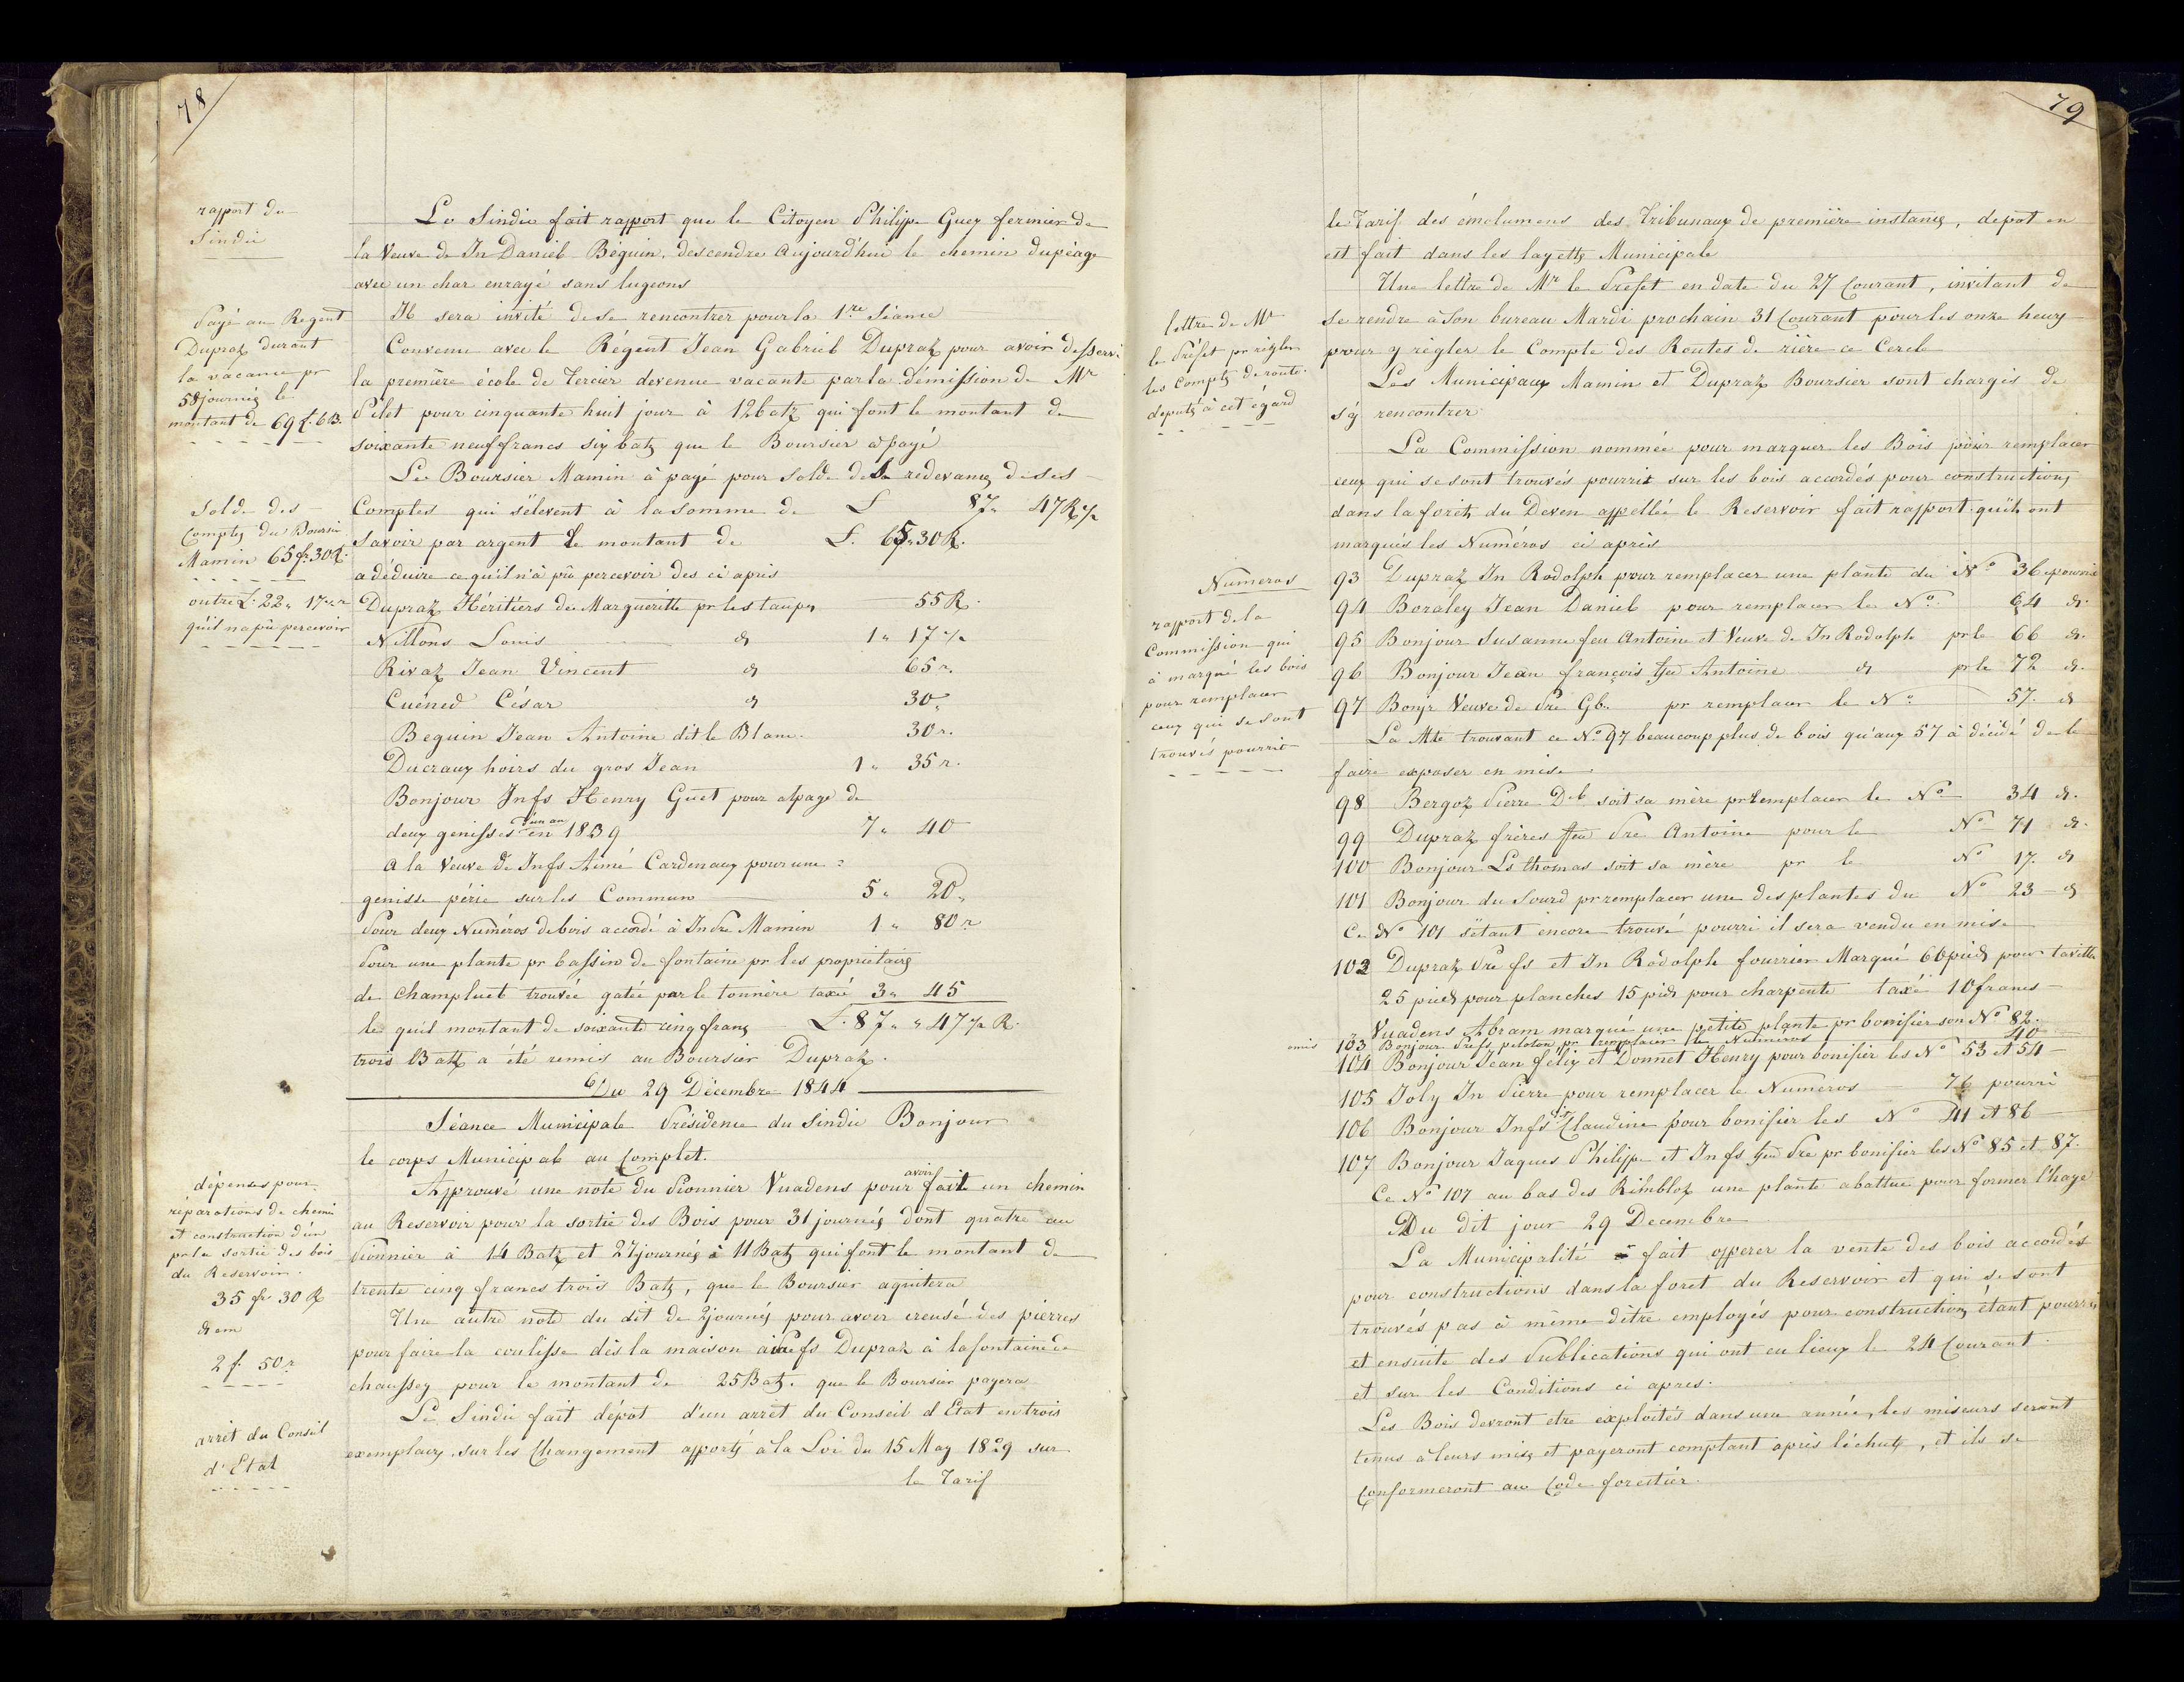 78
rapport du
Sindic
Le Sindic fait rapport que le Citoyen Philippe Guey fermier de
la Veuve de Jn Daniel Béguin, descendre aujourd'hui le chemin dupéage
avec un char enrayé sans lugeons
Il sera invité de se rencontrer pour la 1re Séance
Payé au Regent
Dupraz durant
la vacance pr
58 journés le
montant de 69 f. 6 B.
Convenu avec le Régent Jean Gabriel Dupraz pour avoir desservi
la première école de Tercier devenue vacante par la démission de Mr
Pilet pour cinquante huit jour à 12 batz qui font le montant de
soixante neuf francs six batz que le Boursier a payé
Solde des
Comptes du Boursier
Mamin 65 fr. 30 R.
outre L. 22 " 17 "
qu'il n'a pû percevoir
Le Boursier Mamin à payé pour solde de la redevance de ses
Comptes qui s'élevent à la somme de L 87 " 47 R ½
Savoir par argent le montant de L. 65 " 30 R.
a déduire ce qu'il n'à pû percevoir des ci après
Dupraz Héritiérs de Margueritte pr les taupes 55 R.
Nillons Louis d 1 " 17 ½
Rivaz Jean Vincent d 65 r.
Cuéned César d 30 "
Beguin Jean Antoine dit le Blanc. 30 r.
Ducraux hoirs du gros Jean 1 " 35 r.
Bonjour Jnfs Henry Guet pour alpage de
deux genisses d'un an en 1839 7 " 40
a la Veuve de Jnfs Aimé Cardenaux pour une
genisse périe sur les Commun 5 " 20 "
Pour deux Numéros de bois accordé à Jn Pre Mamin 1 " 80 r
Pour une plante pr bassin de fontaine pr les propriétaires
de Champluet trouvée gatée par le tonnère taxé 3 " 45
le quil montant de soixante cinq francs L. 87 " " 47 ½ R.
trois Batz a été remis au Boursier Dupraz.
Du 29 Décembre 1844
Séance Municipale Présidence du Sindic Bonjour
le corps Municipal au Complet.
dépenses pour
réparations de chemin
et construction d'un
pr la sortie des bois
du Reservoir.
35 fr. 30 R
Idem
2 f. 50 r
Approuvé une note du Pionnier Vuadens pour avoir fait un chemin
au Reservoir pour la sortie des Bois pour 31 journés dont quatre au
Pionnier à 14 Batz et 27 journés à 11 Batz qui font le montant de
trente cinq francs trois Batz, que le Boursier aquitera
Une autre note du dit de 2 journés pour avoir creusé des pierres
pour faire la coulisse dès la maison à Prefs Dupraz à la fontaine de
chaussey pour le montant de 25 Batz. que le Boursier payera
arrêt du Conseil
d'Etat
Le Sindic fait dépot d'un arrêt du Conseil d'Etat en trois
exemplaires sur les Changement apportés à la Loi du 15 May 1829 sur
le Tarif
79
le Tarif des émolumens des Tribunaux de première instance, depot en
est fait dans les layettes Municipale
lettre de Mr
le Préfet pr règler
les comptes de route.
deputés à cet égard
Une lettre de Mr le Prefet en date du 27 Courant, invitant de
se rendre à Son bureau Mardi prochain 31 Courant pour les onze heures
pour y règler le Compte des Routes de rière ce Cercle
Les Municipaux Mamin et Dupraz Boursier sont chargés de
s'y rencontrer
La Commission nommée pour marquer les Bois pour remplacer
ceux qui se sont trouvés pourrit sur les bois accordés pour constructions
dans la foret du Deven appellée le Reservoir fait rapport qu'ils ont
marqués les Numéros ci après
Numeros
rapport de la
Commission qui
à marqué les bois
pour remplacer
ceux qui se sont
trouvés pourrit
93 Dupraz Jn Rodolph pour remplacer une plante du No 36 pourrie
94 Boraley Jean Daniel pour remplacer le No. 64 d.
95 Bonjour Susanne feu Antoine et Veuve de Jn Rodolphe pr le 66 d.
96 Bonjour Jean françois feu Antoine d pr le 72 d.
97 Bonjr Veuve de Pre Gb. pr remplacer le No 57. d
La Mte trouvant ce No 97 beaucoup plus de bois qu'aux 57 à décidé de le
faire exposer en mise
98 Bergoz Pierre Dl soit sa mère pr remplacer le No 34 d.
99 Dupraz frères feu Pre Antoine pour le No 71 d.
100 Bonjour Ls thomas soit sa mère pr le No 17. d
101 Bonjour du Sourd pr remplacer une des plantes du No 23 d
Ce No 101 s'étant encore trouvé pourri il sera vendu en mise
102 Dupraz Pre fs et Jn Rodolph fourrier Marqué 66 pieds pour tavilles
25 pieds pour planches 15 pieds pour charpente taxé 10 francs
103 Vuadens Abram marqué une petite plante pr bonifier son No 82.
omis Bonjour Jnfs peloton pr remplacer le Numéros 40
104 Bonjour Jean félix et Donnet Henry pour bonifier les No 53 et 54
105 Joly Jn Pierre pour remplacer le Numéros 76 pourri
106 Bonjour Jnfs dit Claudine pour bonifier les No 41 et 86
107 Bonjour Jaques Philippe et Jnfs feu Pre pr bonifier les No 85 et 87.
Ce No 107 au bas des Rimbloz une plante abattue pour former l'haye
Du dit jour 29 Decembre
La Municipalité à fait opperer la vente des bois accordés
pour constructions dans la foret du Reservoir et qui se sont
trouvés pas à même d'être employés pour constructions étant pourris
et ensuite des Publications qui ont eu lieux le 24 Courant.
et sur les Conditions ci apres.
Les Bois devront etre exploités dans une année, les miseurs seront
tenus à leurs mises et payeront comptant après l'échute, et ils se
Conformeront au Code forestier.